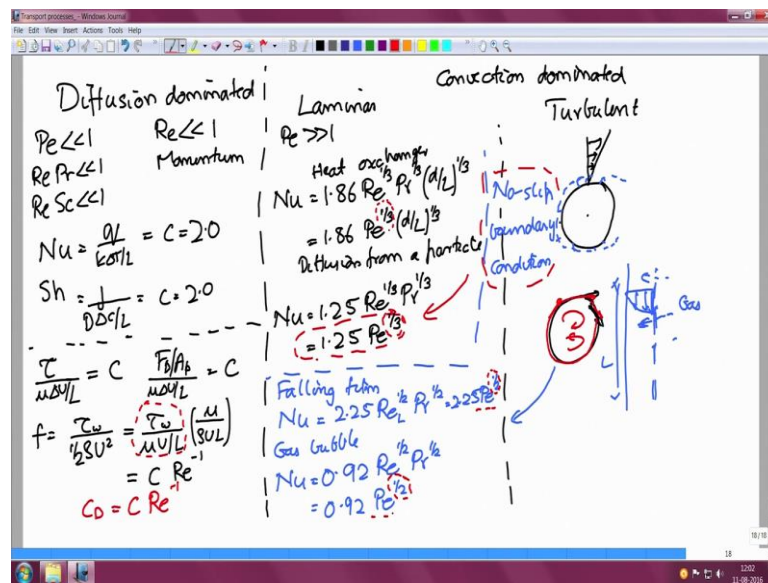 Transport processes_ - Windows Journal
File Edit View Insert Actions Tools Help
Diffusion dominated
Pe<<1 Re<<1
RePr<<1 Momentum
ReSc<<1
Nu = q/(kΔT/L) = C = 2.0
Sh = j/(DΔC/L) = C = 2.0
τ/(μΔU/L) = C F_D/A_p/(μΔU/L) = C
f = τ_w/(½ρU²) = τ_w/(μU/L) (μ/ρUL)
= C Re⁻¹
C_D = C Re⁻¹
Convection dominated
Laminar
Pe >>1
Heat exchanger
Nu = 1.86 Re^1/3 Pr^1/3 (d/L)^1/3
= 1.86 Pe^1/3 (d/L)^1/3
Diffusion from a particle
Nu = 1.25 Re^1/3 Pr^1/3
= 1.25 Pe^1/3
Falling film
Nu = 2.25 Re_L^1/2 Pr^1/2 = 2.25 Pe^1/2
Gas bubble
Nu = 0.92 Re^1/2 Pr^1/2
= 0.92 Pe^1/2
No-slip
boundary
condition
Turbulent
Gas
L
18/18
18
12:02
11-08-2016